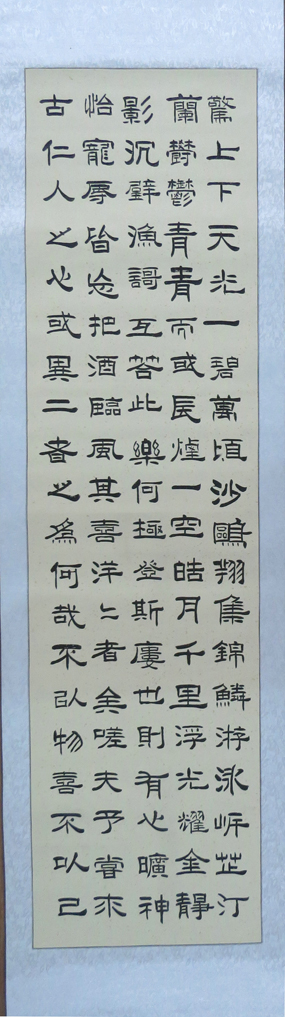 驚上下天光一碧萬頃沙鷗翔集錦鱗游泳岸芷汀
蘭鬱鬱青青而或長煙一空皓月千里浮光耀金靜
影沉璧漁謌互答此樂何極登斯廔也則有心曠神
怡寵辱皆忘把酒臨風其喜洋〻者矣嗟夫予嘗求
古仁人之心或異二者之為何哉不以物喜不以己